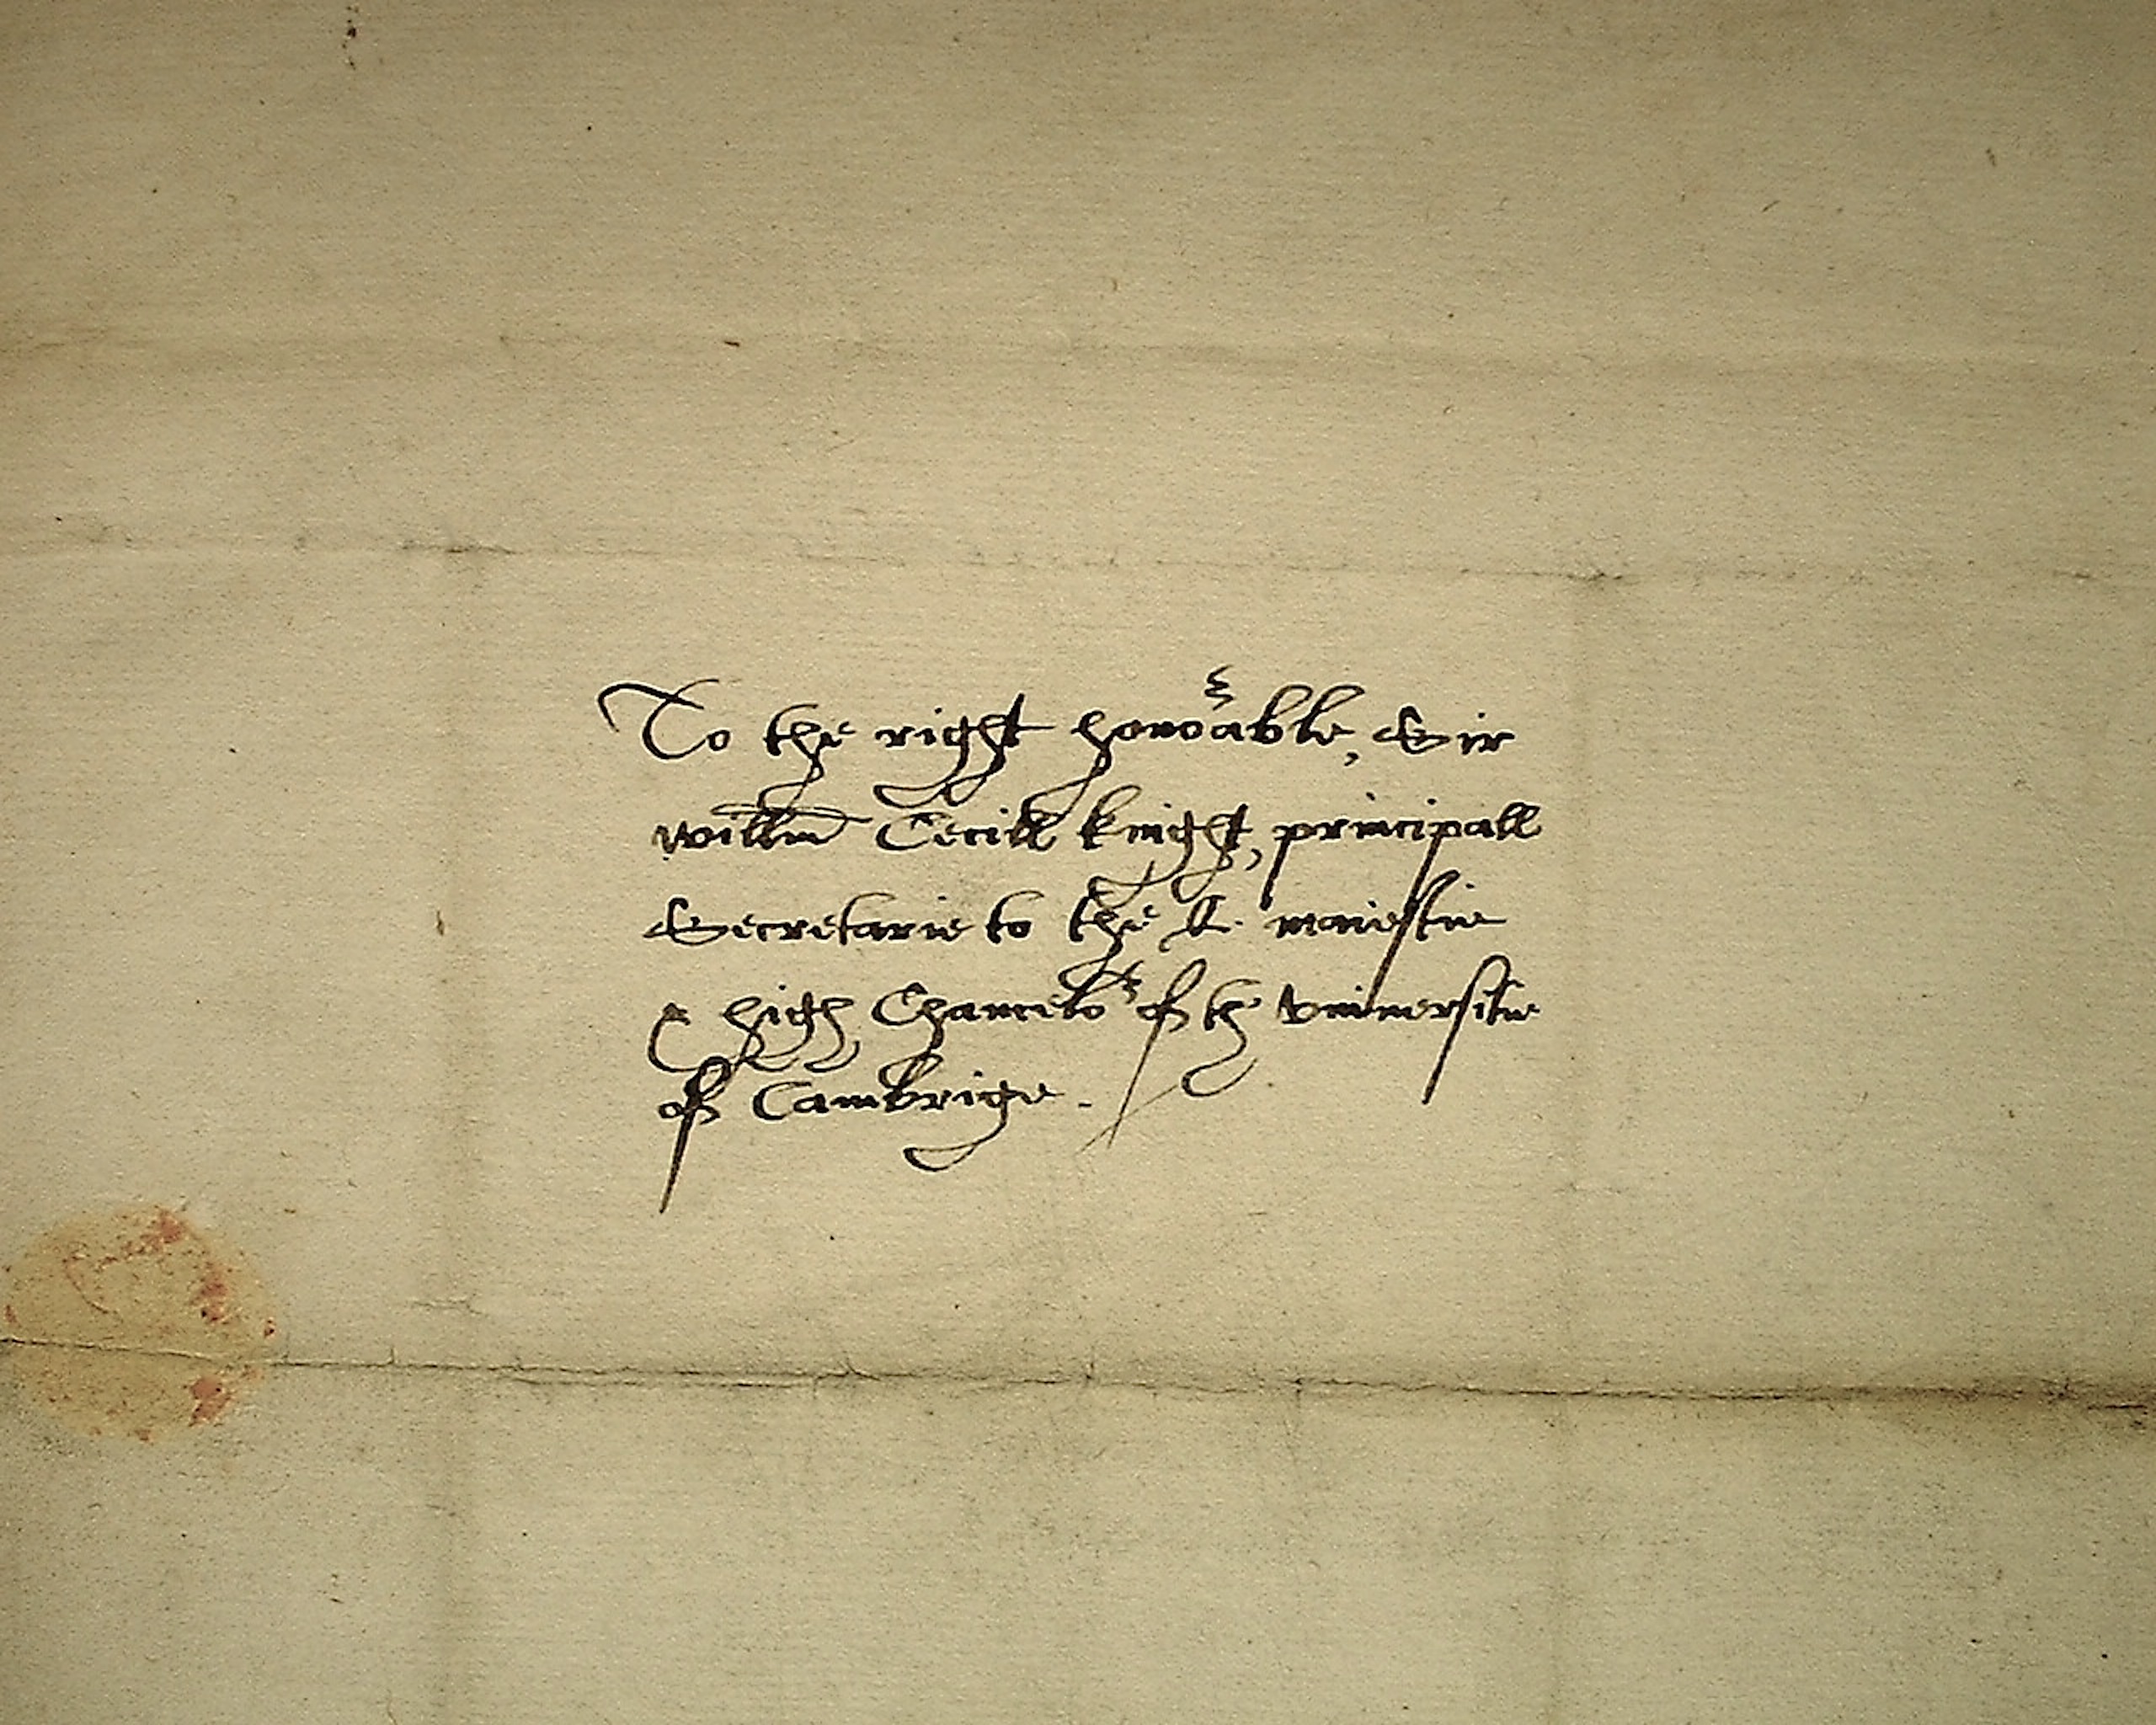 To the right honorable, Sir
Willm Cecill knight, principall
Secretarie to the Q. maiestie
& high Chancelor of the vniuersitie
of Cambrige.